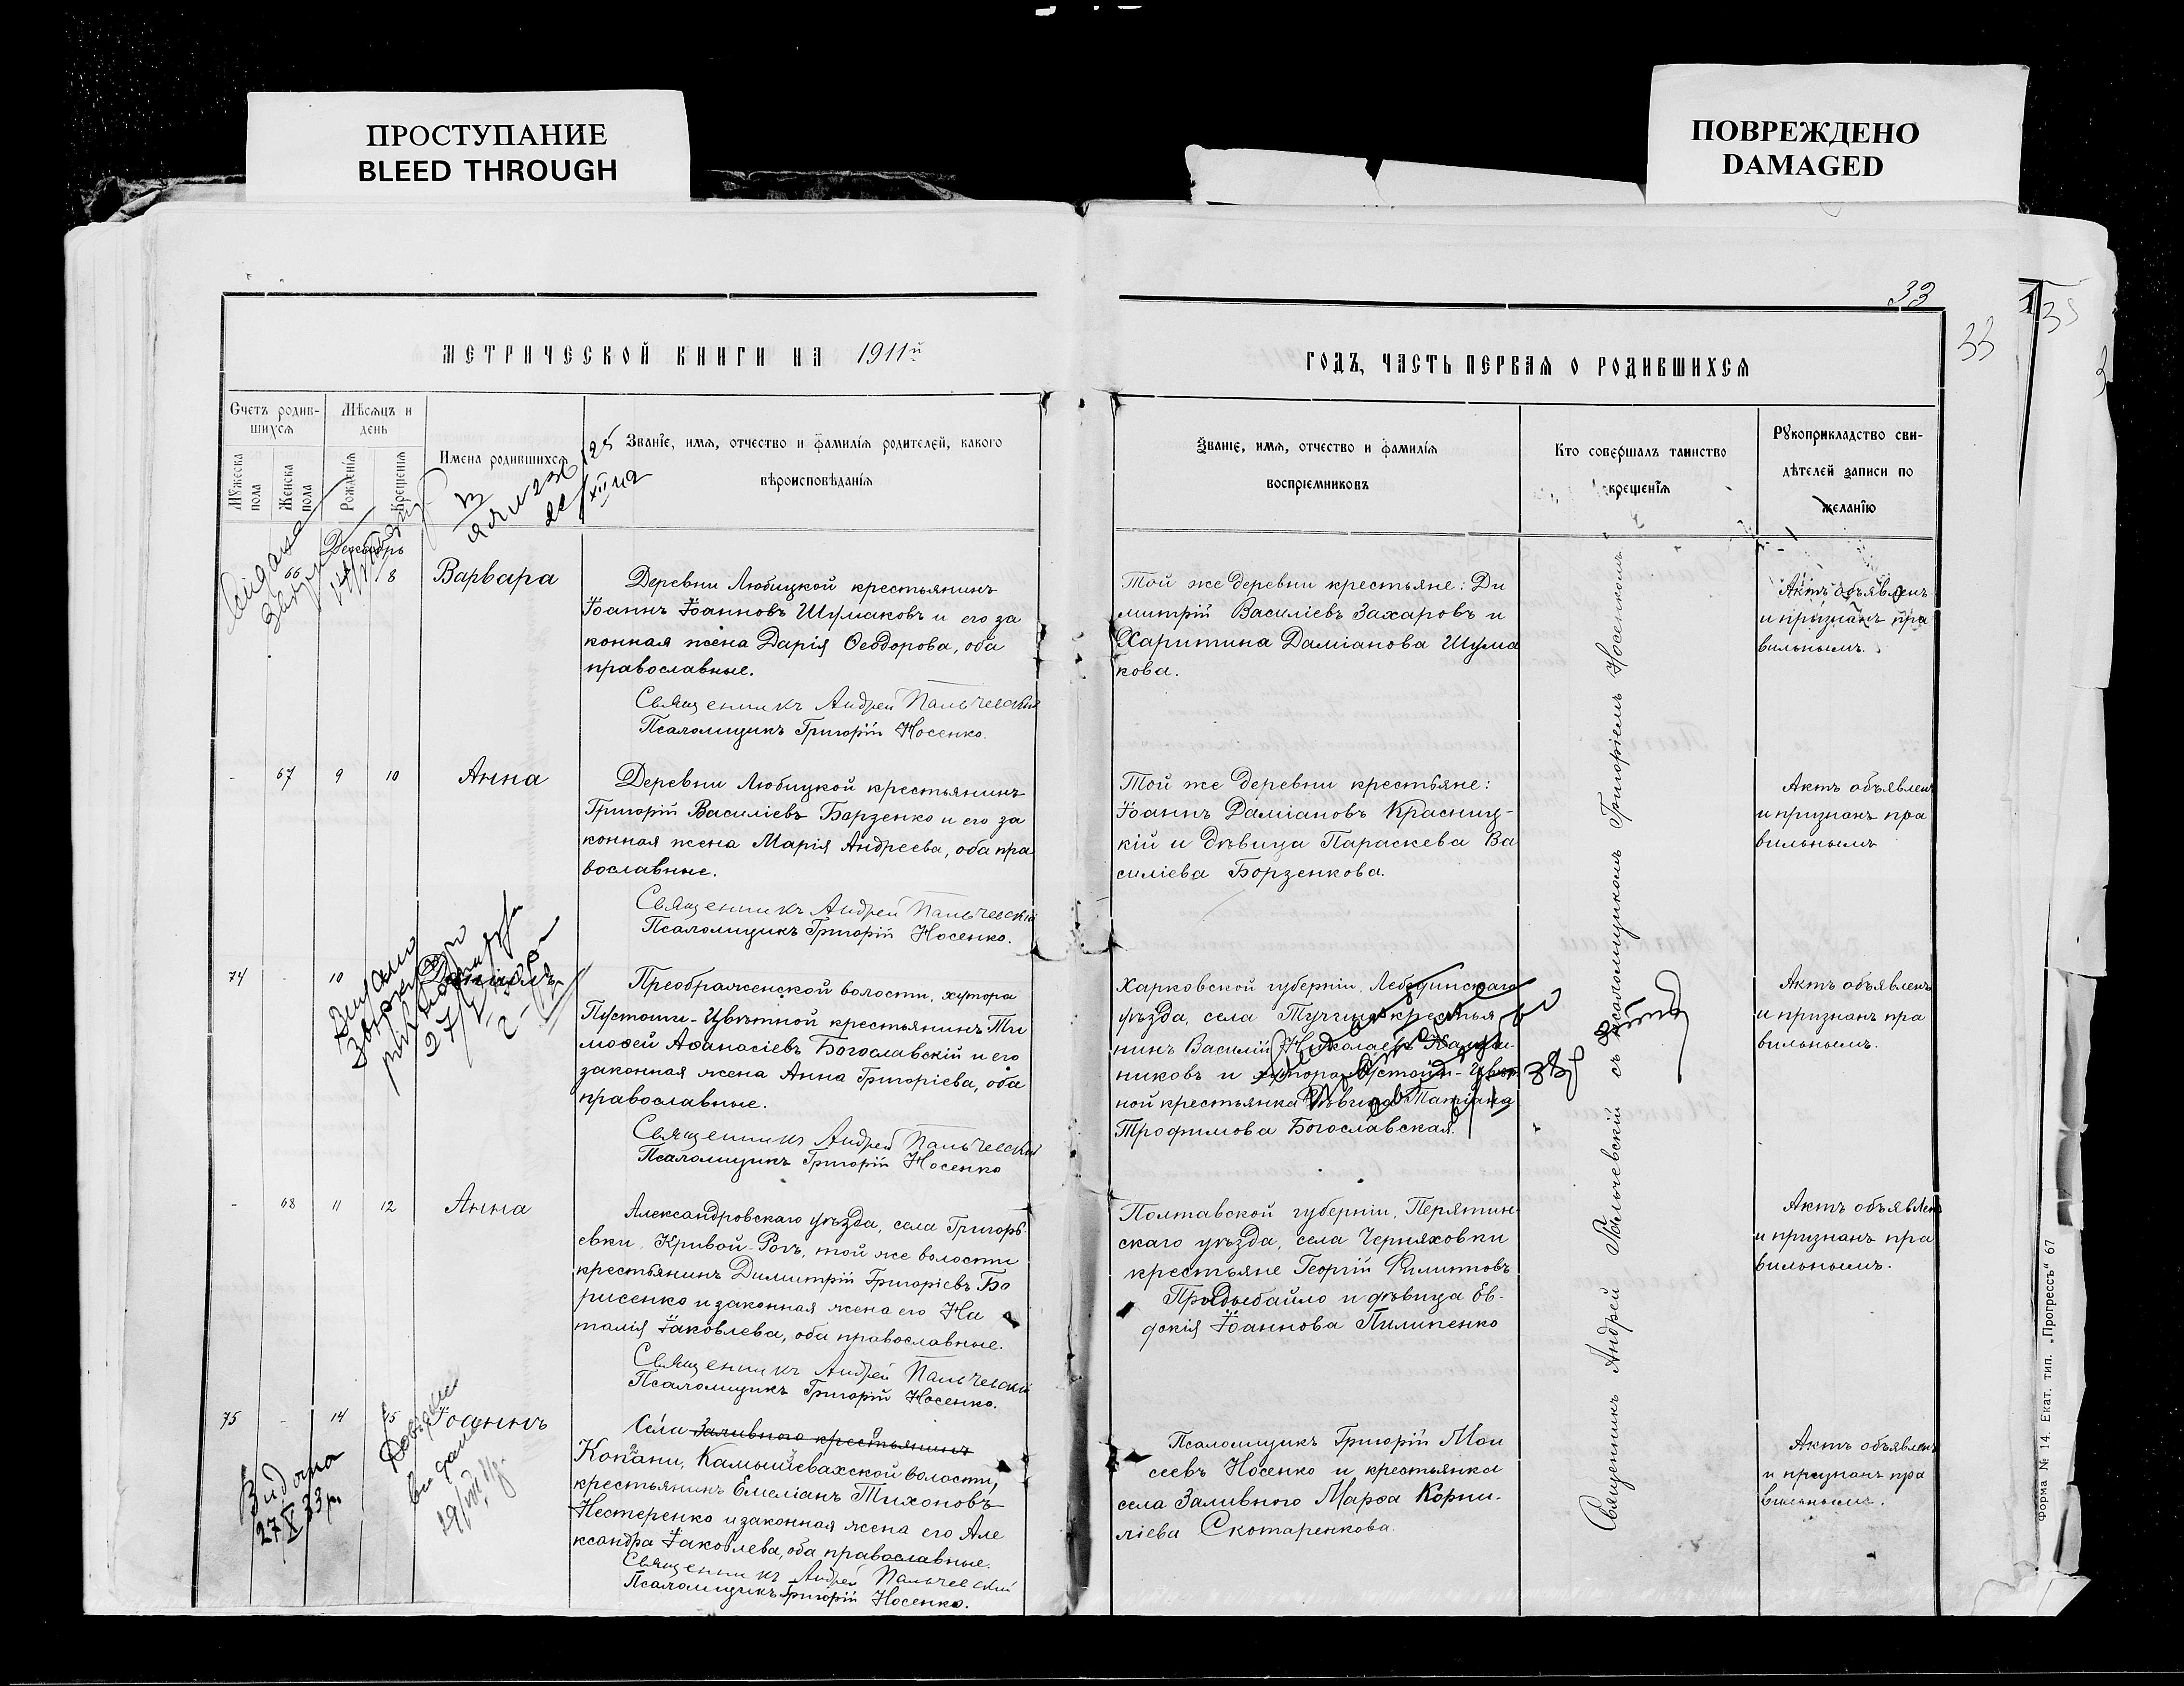 ПРОСТУПАНИЕ
BLEED THROUGH
ПОВРЕЖДЕНО
DAMAGED
33
33
МЕТРИЧЕСКОЙ КНИГИ НА 1911й
ГОДЪ, ЧАСТЬ ПЕРВАЯ О РОДИВШИХСЯ
Счетъ родив-
шихся
Мѣсяцъ и
день
Мужеска
пола
Женска
пола
Рожденія
Крещенія
Имена родившихся
Званіе, имя, отчество и фамилія родителей, какого
вѣроисповѣданія
Званіе, имя, отчество и фамилія
воспріемниковъ
Кто совершалъ таинство
крещенія
Рукоприкладство сви-
дѣтелей записи по
желанію
Декабрь
66
8
Варвара
Деревни Любицкой крестьянинъ
Іоаннъ Іоанновъ Шумаковъ и его за
конная жена Дарія Ѳеодорова, оба
православные.
Священникъ Андрей Пальчевскій
Псаломщикъ Григорій Носенко.
Той же деревни крестьяне: Ди
митрій Василіевъ Захаровъ и
Харитина Даміанова Шума
кова.
Актъ объявленъ
и признанъ пра
вильнымъ.
- 67 9 10
Анна
Деревни Любицкой крестьянинъ
Григорій Василіевъ Борзенко и его за
конная жена Марія Андреева, оба пра
вославные.
Священникъ Андрей Пальчевскій
Псаломщикъ Григорій Носенко.
Той же деревни крестьяне:
Іоаннъ Даміановъ Красниц-
кій и дѣвица Параскева Ва
силіева Борзенкова.
Актъ объявленъ
и признанъ пра
вильнымъ
74 - 10
Преображенской волости, хутора
Пустоши-Цвѣтной крестьянинъ Ти
моѳей Аѳанасіевъ Богославскій и его
законная жена Анна Григоріева, оба
православные.
Священникъ Андрей Пальчевскій
Псаломщикъ Григорій Носенко
Харковской губерніи, Лебединскаго
уѣзда, села крестья
нинъ Василій Николаевъ
никовъ и хутора Пустоши-Цвѣт
ной крестьянка дѣвица Татіана
Трофимова Богославская.
Актъ объявленъ
и признанъ пра
вильнымъ.
- 68 11 12
Анна
Александровскаго уѣзда, села Григорь
евки, Кривой-Рогъ, той же волости
крестьянинъ Димитрій Григоріевъ Бо
рисенко и законная жена его На
талія Іаковлева, оба православные.
Священникъ Андрей Пальчевскій
Псаломщикъ Григорій Носенко.
Полтавской губерніи, Перятин-
скаго уѣзда, села Черняховки
крестьяне Георгій Филиповъ
и дѣвица Ев-
докія Іоаннова Пилипенко
Актъ объявленъ
и признанъ пра
вильнымъ.
75 - 14 15
Іоаннъ
Села Заливного крестьянинъ
Копани, Камышевахской волости,
крестьянинъ Емеліанъ Тихоновъ
Нестеренко и законная жена его Але
ксандра Іаковлева, оба православные.
Священникъ Андрей Пальчевскій
Псаломщикъ Григорій Носенко.
Псаломщикъ Григорій Мои
сеевъ Носенко и крестьянка
села Заливного Марѳа Корни-
ліева Скотаренкова.
Актъ объявленъ
и признанъ пра
вильнымъ.
Священникъ Андрей Пальчевскій съ псаломщикомъ Григоріемъ Носенкомъ
Видано
27/X 33р.
Форма № 14. Екат. тип. „Прогрессъ“ 67